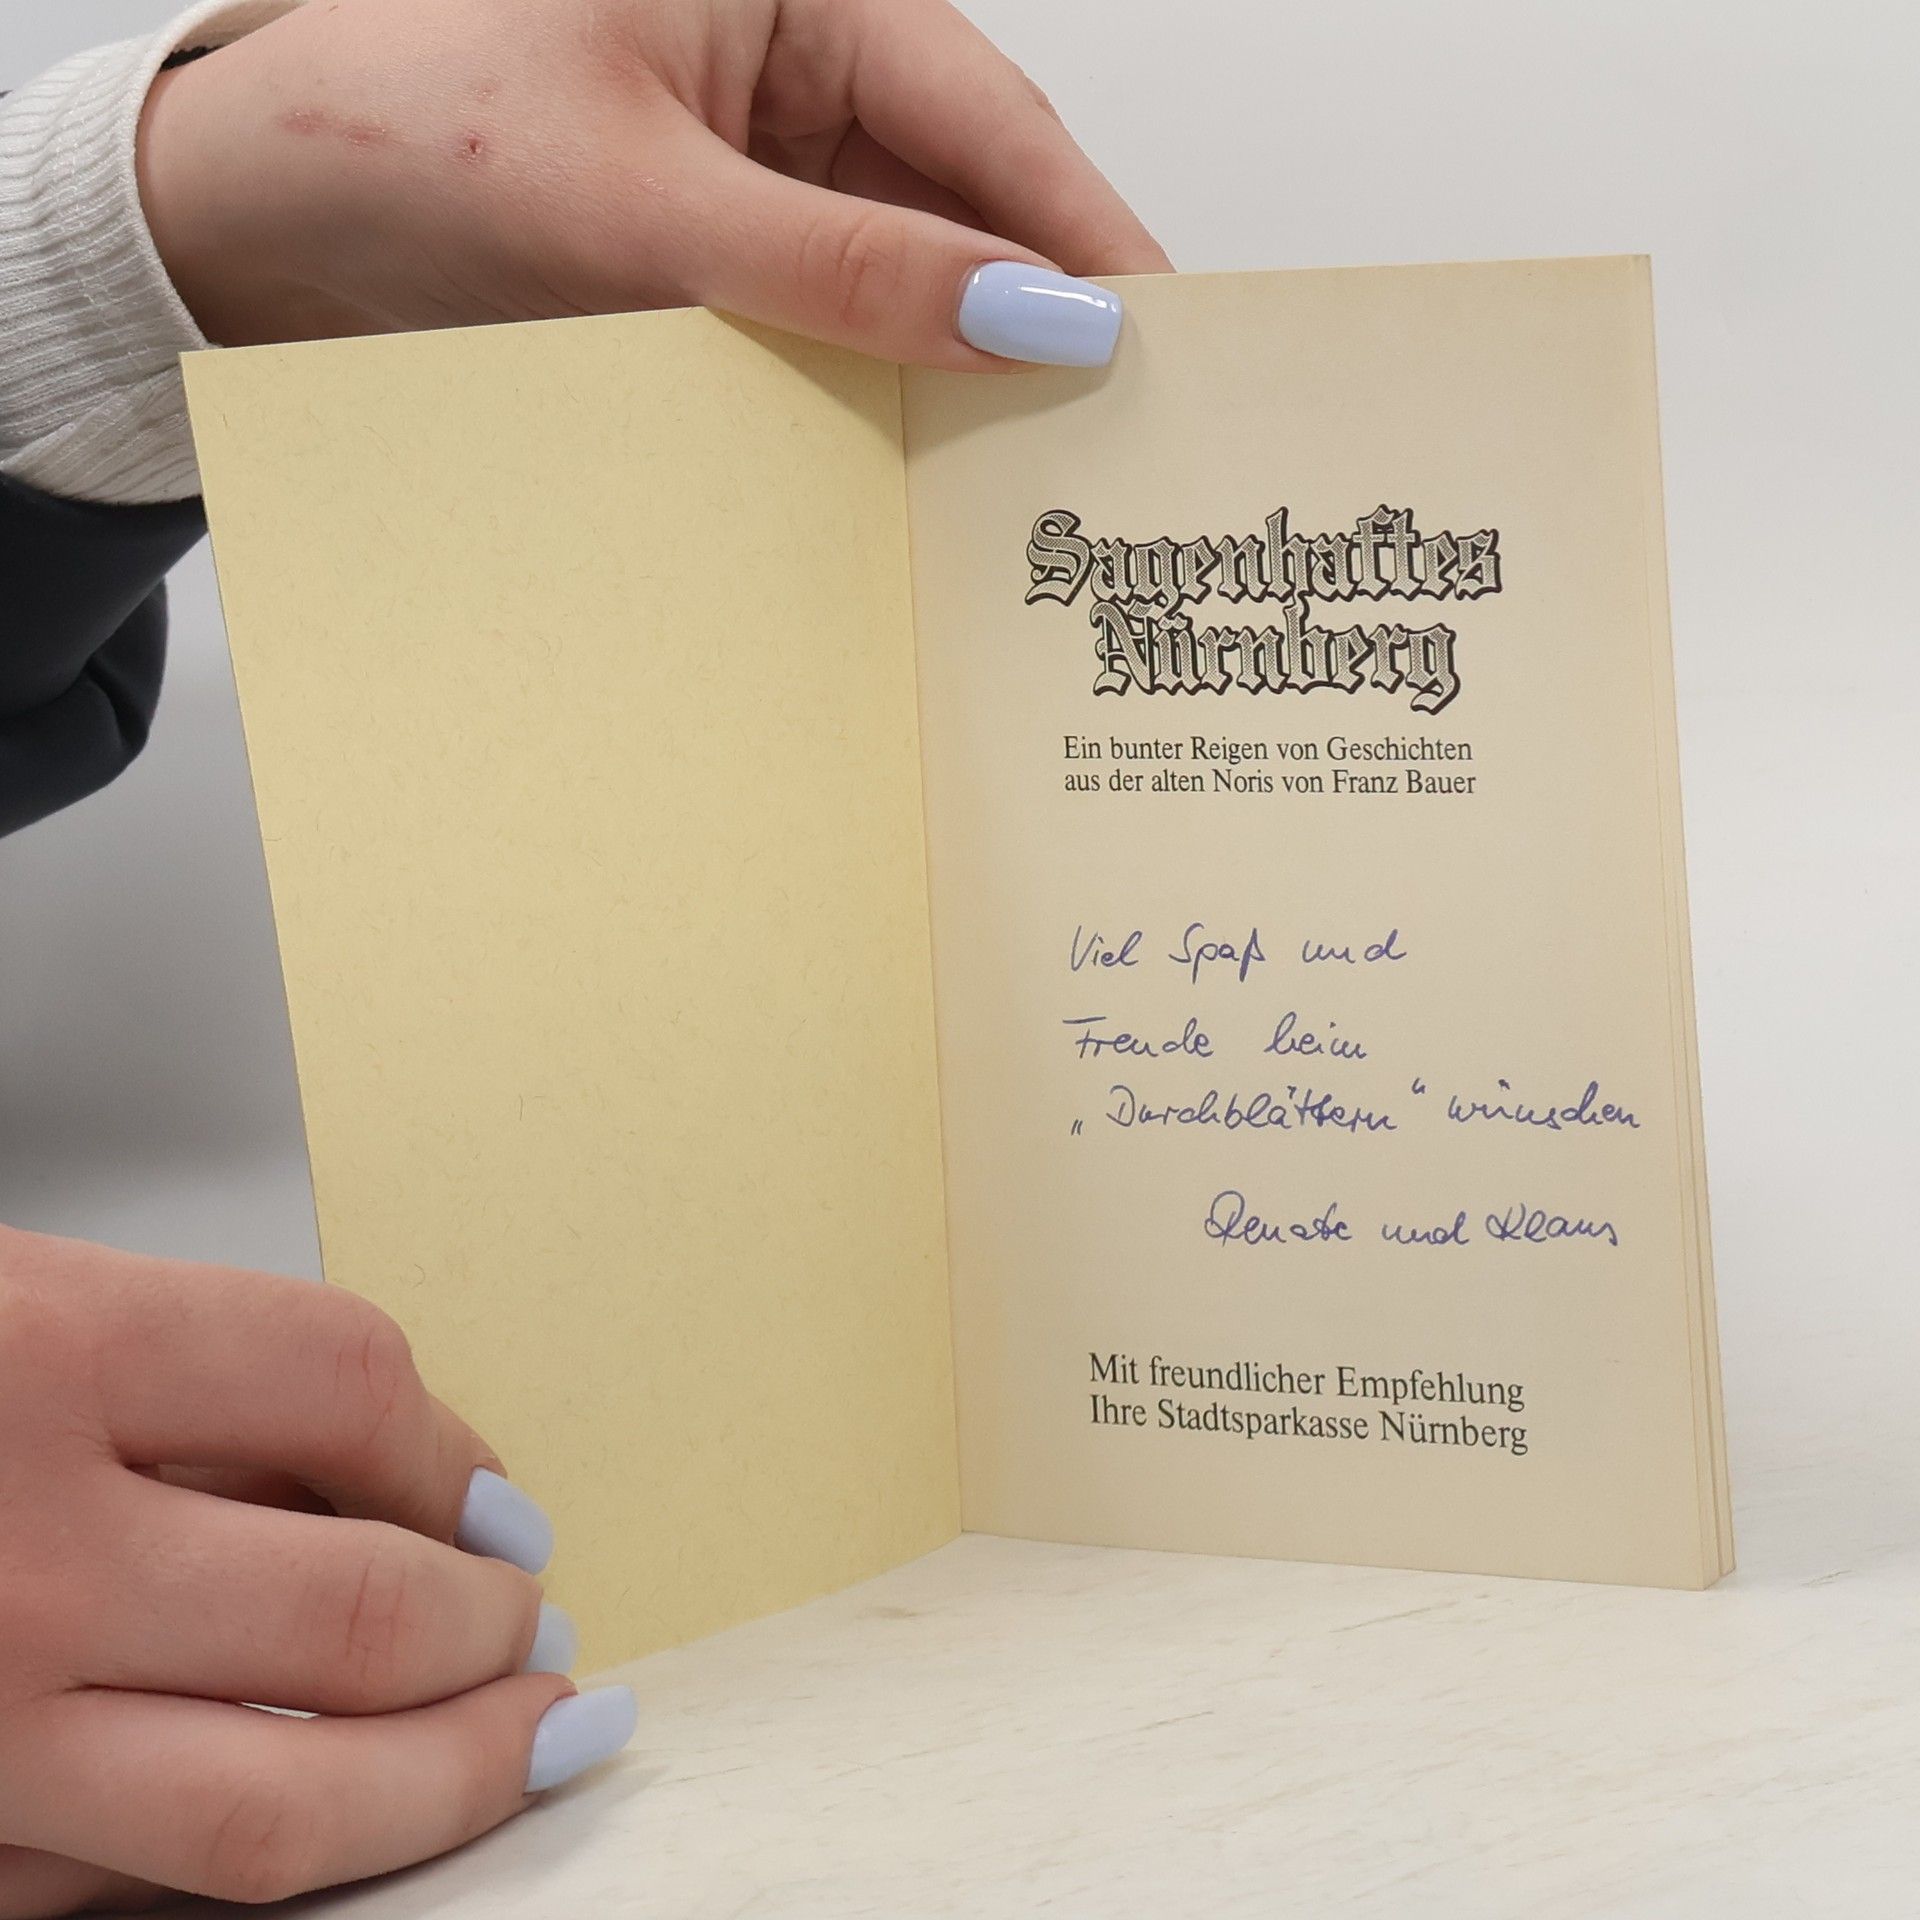 Sagenhaftes
Nürnberg
Ein bunter Reigen von Geschichten
aus der alten Noris von Franz Bauer
Viel Spaß und
Freude beim
„Durchblättern“ wünschen
Renate und Klaus
Mit freundlicher Empfehlung
Ihre Stadtsparkasse Nürnberg